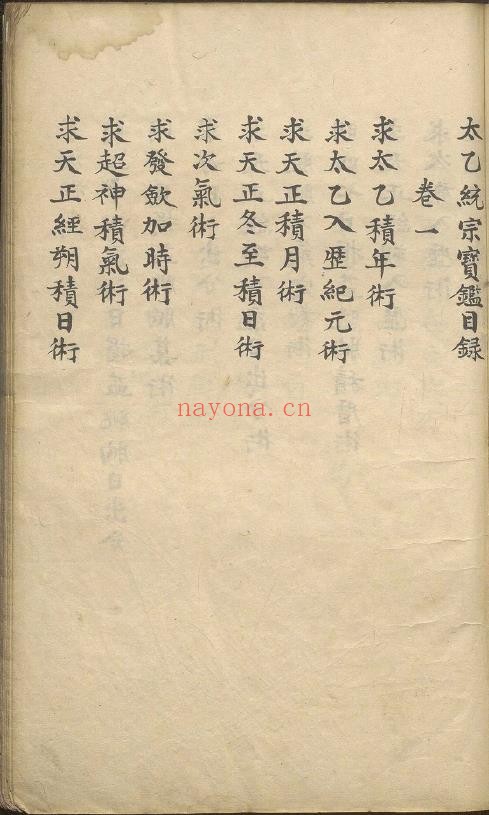 太乙統宗寶鑑目録
卷一
求太乙積年術
求太乙入歷紀元術
求天正積月術
求天正冬至積日術
求次氣術
求發歛加時術
求超神積氣術
求天正經朔積日術
nayona.cn